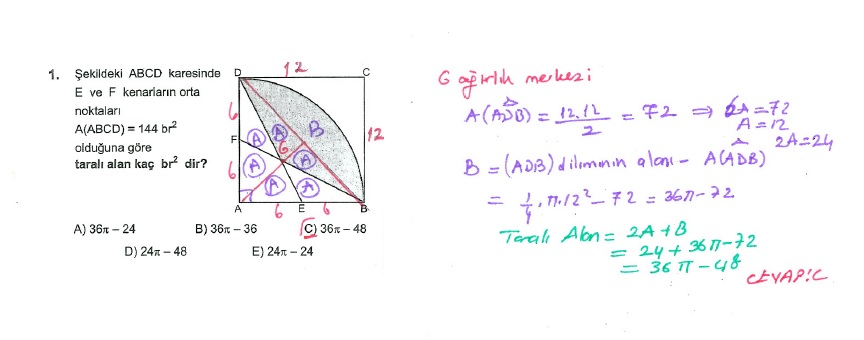 1. Şekildeki ABCD karesinde
E ve F kenarların orta
noktaları
A(ABCD) = 144 br²
olduğuna göre
taralı alan kaç br² dir?
D 12 C
6
F A A B 12
G
6 A A
A A
A 6 E 6 B
A) 36π – 24 B) 36π – 36 C) 36π – 48
D) 24π – 48 E) 24π – 24
G ağırlık merkezi
A(ADB) = 12.12/2 = 72 ⇒ 6A = 72
A = 12
2A = 24
B = (ADB) diliminin alanı – A(ADB)
= 1/4 . π . 12² – 72 = 36π – 72
Taralı Alan = 2A + B
= 24 + 36π – 72
= 36π – 48
CEVAP: C